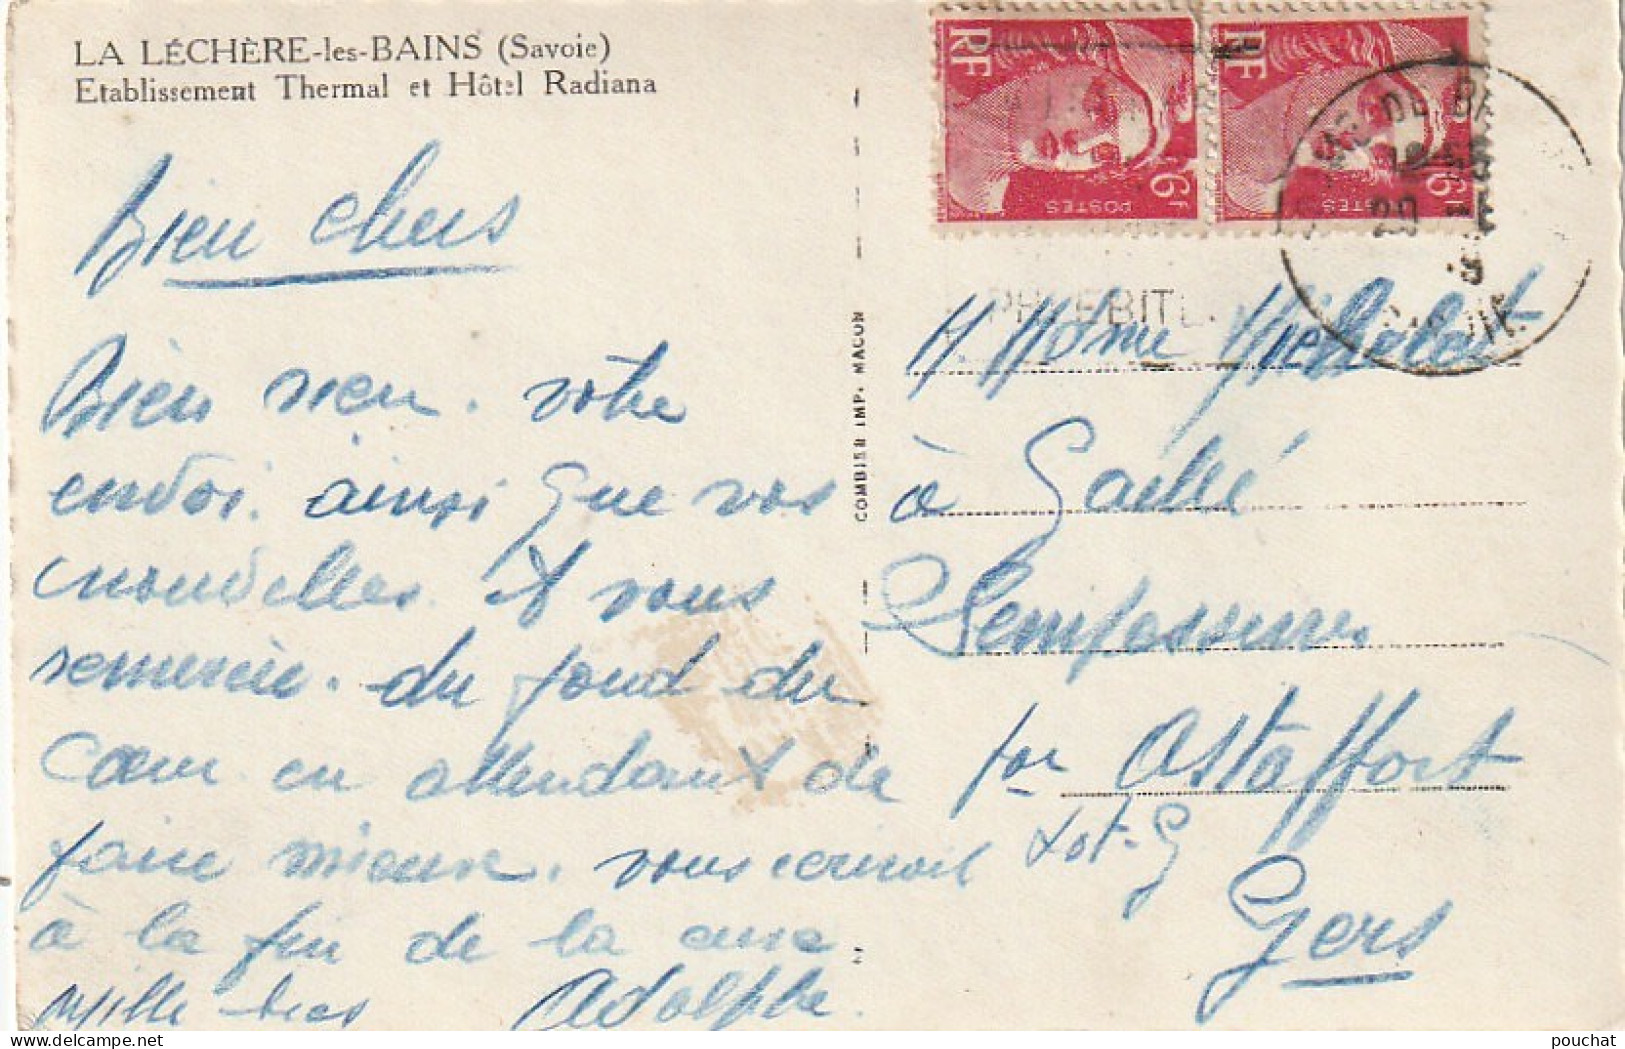 LA LÉCHÈRE-les-BAINS (Savoie)
Etablissement Thermal et Hôtel Radiana
Bien chers
Bien recu. votre
envoi. ainsi que vos
nouvelles. et vous
remercie. du fond du
cœur. en attendant de
faire mieux. vous
à la fin de la cure
Mille bses Adolphe.
COMBIER IMP. MACON
RF
POSTES
6F
RF
POSTES
6F
PHLEBITE.
M Mme
à
par Astaffort
Lot-G
Gers
pouchat